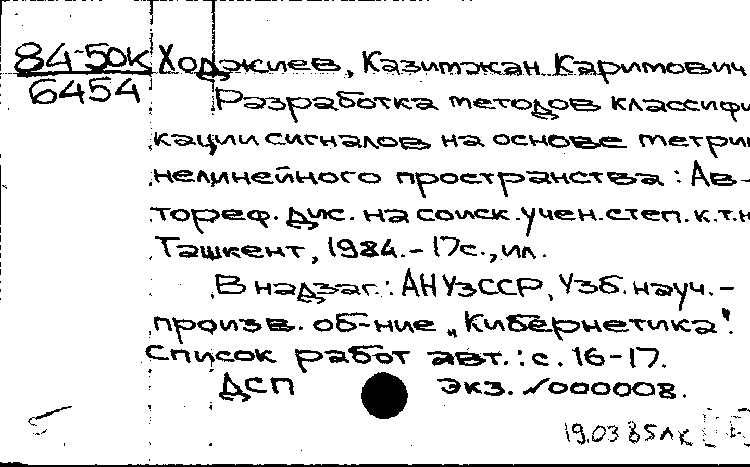 84-50к
6454
Ходжиев, Казимжан Каримович
Разработка методов классифи
кации сигналов на основе метрик
нелинейного пространства : Ав-
тореф. дис. на соиск. учен. степ. к.т.н
Ташкент, 1984. - 17с., ил.
В надзаг.: АН УзССР, Узб. науч.-
произв. об-ние „Кибернетика".
Список работ авт.: с. 16-17.
ДСП экз. №000008.
19.03 85